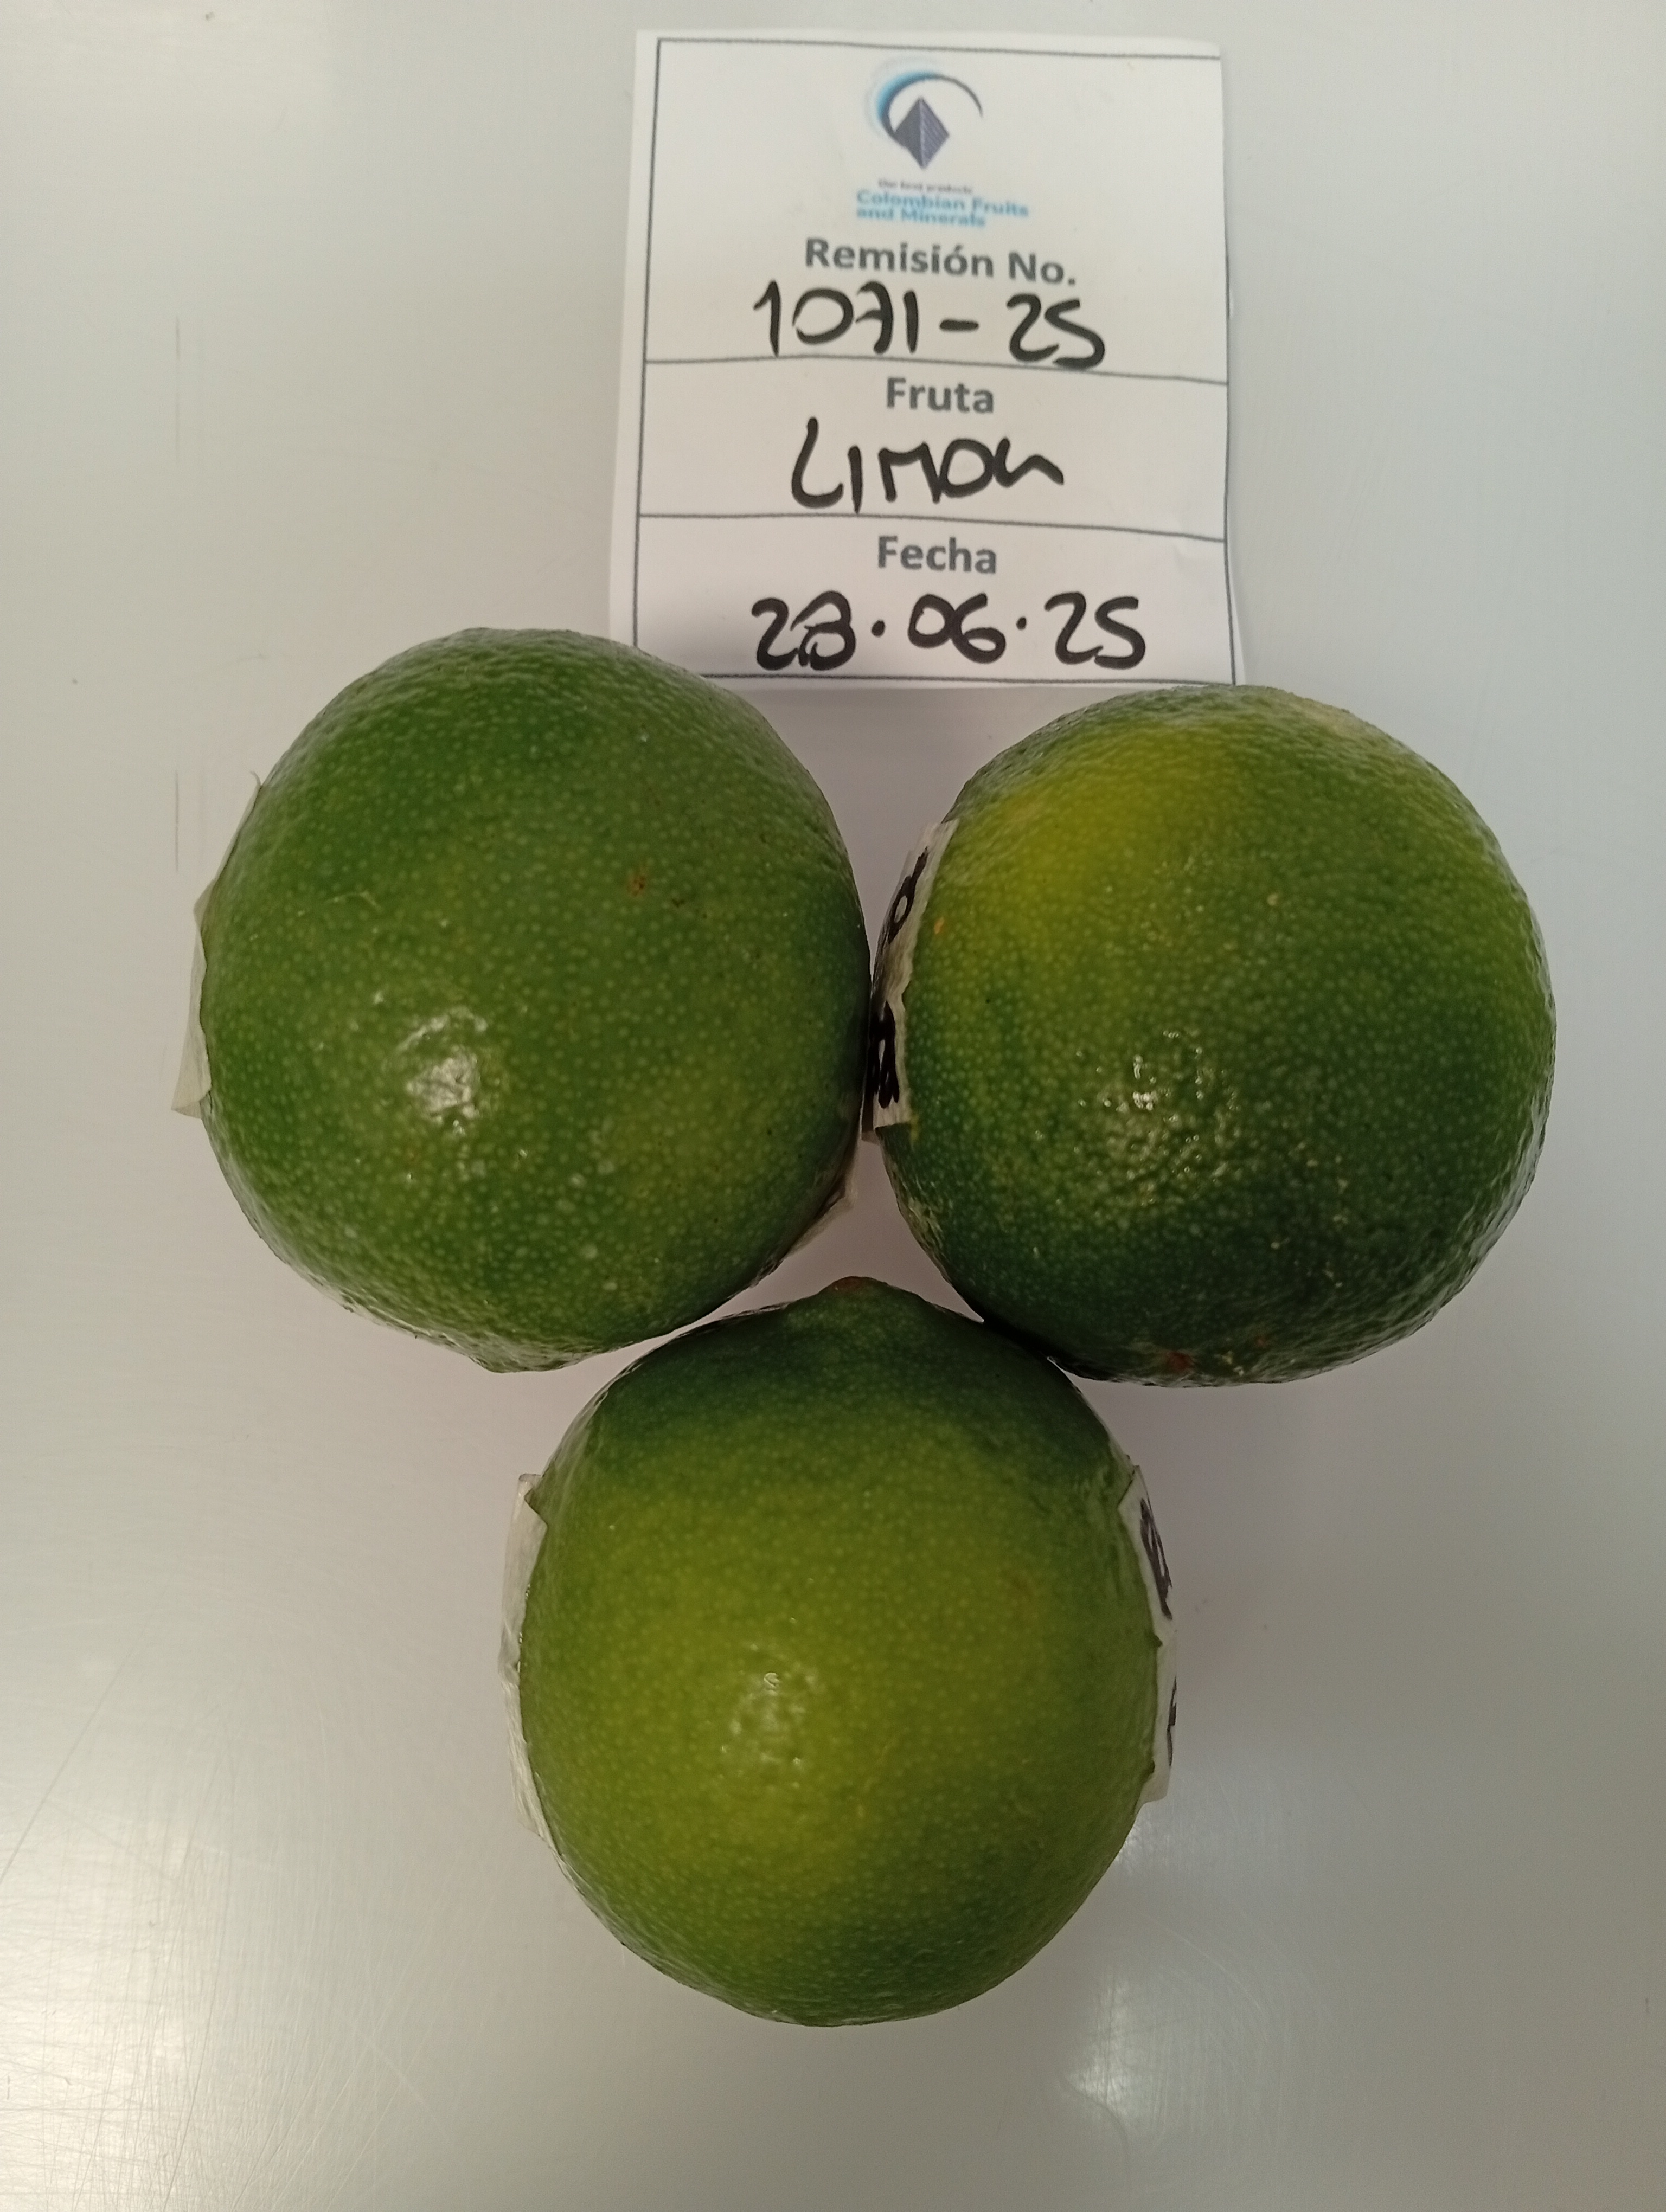 Our best products
Colombian Fruits
and Minerals
Remisión No.
1071-25
Fruta
LIMON
Fecha
28.06.25